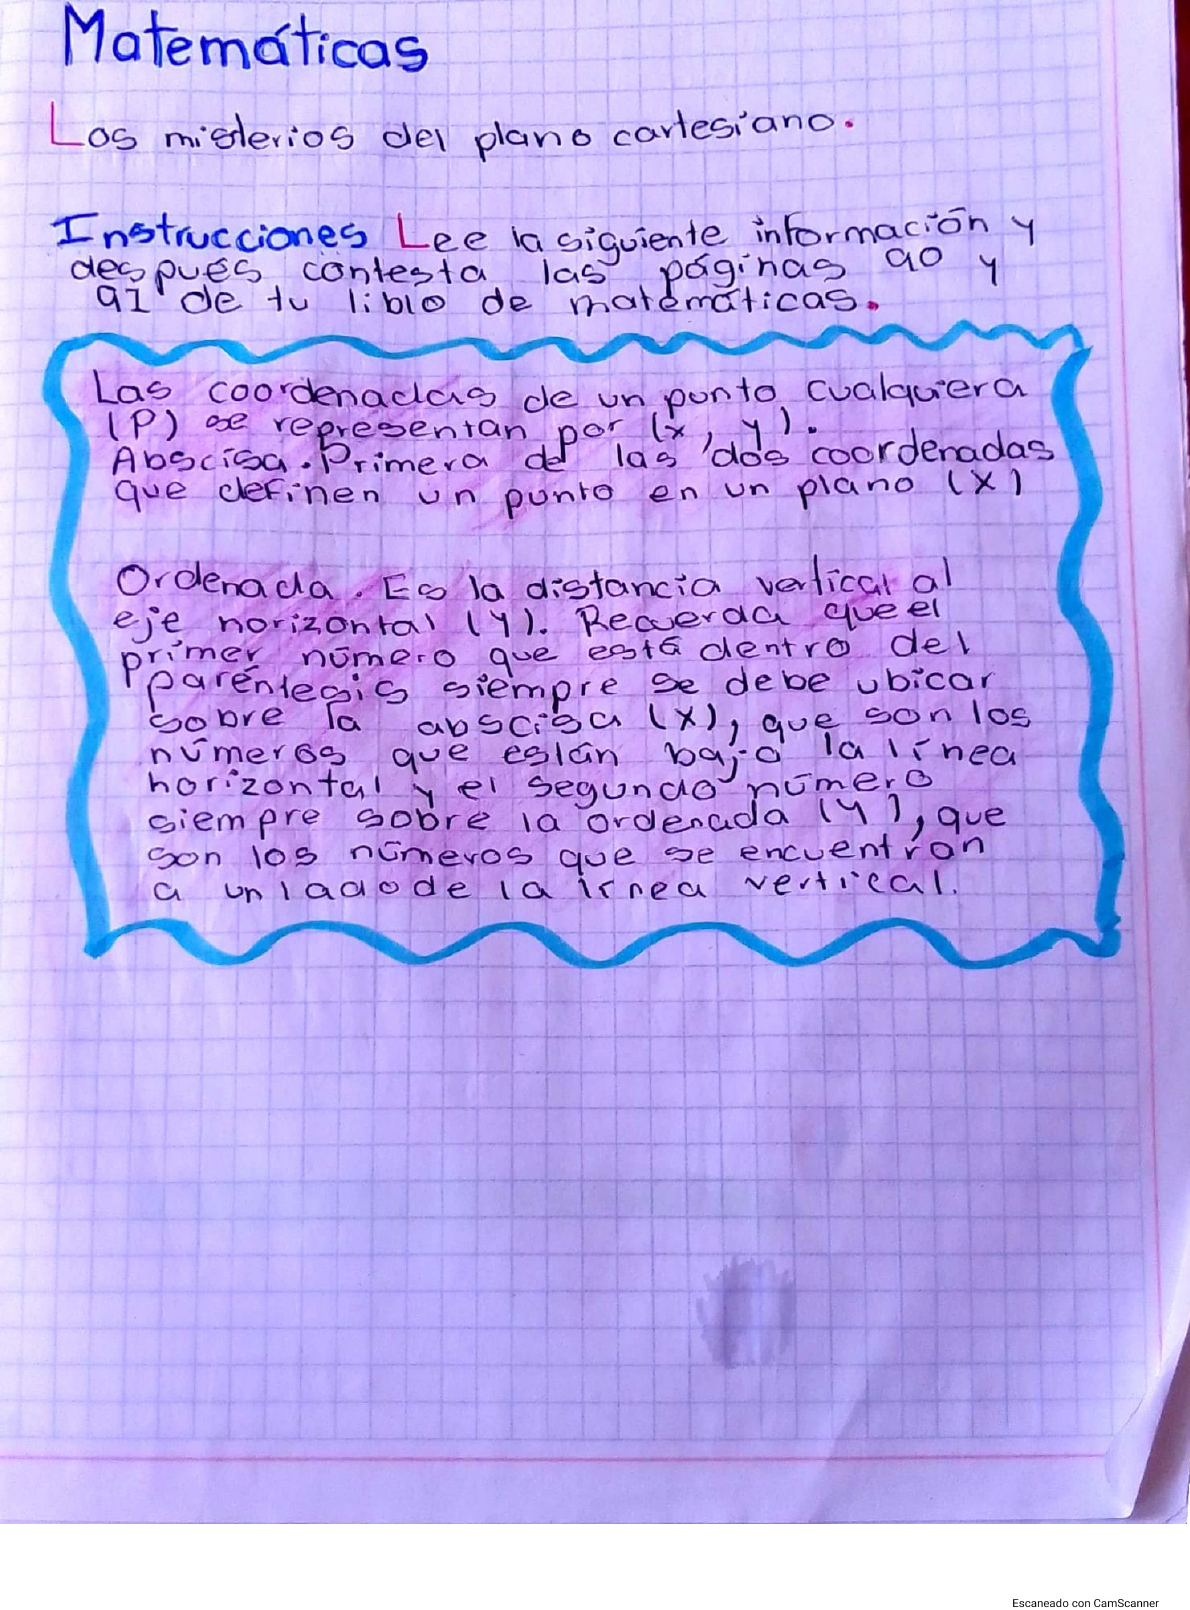 Matemáticas
Los misterios del plano cartesiano.
Instrucciones Lee la siguiente información y
después contesta las páginas 90 y
91 de tu libro de matemáticas.
Las coordenadas de un punto cualquiera
(P) se representan por (x, y).
Abscisa. Primera de las dos coordenadas
que definen un punto en un plano (X)
Ordenada. Es la distancia vertical al
eje horizontal (y). Recuerda que el
primer número que está dentro del
paréntesis siempre se debe ubicar
sobre la abscisa (x), que son los
números que están bajo la línea
horizontal y el segundo número
siempre sobre la ordenada (y), que
son los números que se encuentran
a un lado de la línea vertical.
Escaneado con CamScanner